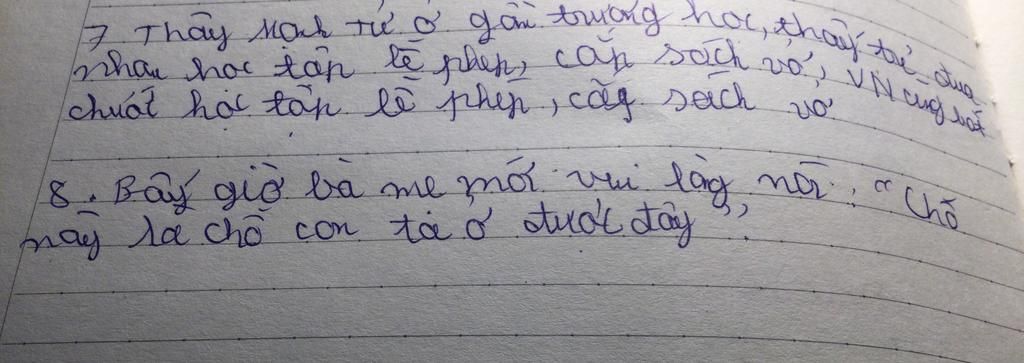 7. Thầy Mạnh Tử ở gần trường học, thấy trẻ đua
nhau học tập lễ phép, cắp sách vở, VN cũng bắt
chước học tập lễ phép, cắp sách vở
8. Bấy giờ bà mẹ mới vui lòng nói: "Chỗ
này là chỗ con ta ở được đây"